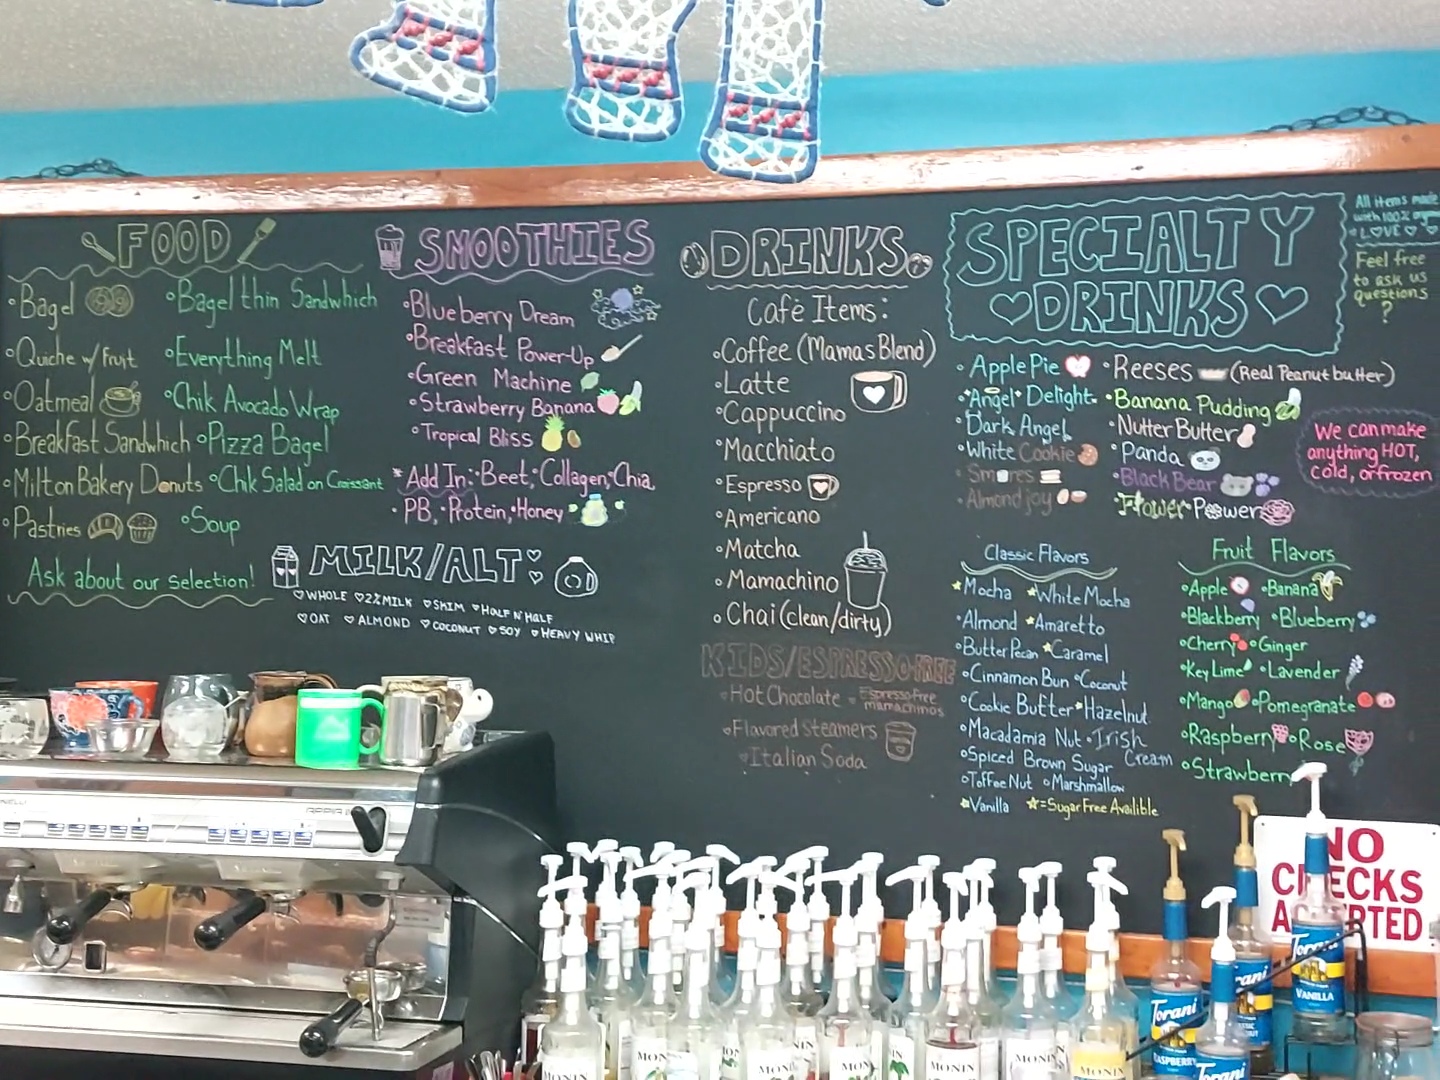 FOOD
Bagel
Bagel thin Sandwhich
Quiche w/ fruit
Everything Melt
Oatmeal
Chik Avocado Wrap
Breakfast Sandwhich
Pizza Bagel
Milton Bakery Donuts
Chik Salad on Croissant
Pastries
Soup
Ask about our selection!
SMOOTHIES
Blueberry Dream
Breakfast Power-Up
Green Machine
Strawberry Banana
Tropical Bliss
*Add In: Beet, Collagen, Chia,
PB, Protein, Honey
MILK/ALT
WHOLE 2% MILK SKIM HALF N' HALF
OAT ALMOND COCONUT SOY HEAVY WHIP
DRINKS
Café Items:
Coffee (Mamas Blend)
Latte
Cappuccino
Macchiato
Espresso
Americano
Matcha
Mamachino
Chai (clean/dirty)
KIDS/ESPRESSO-FREE
Hot Chocolate
Espresso free
mamachinos
Flavored Steamers
Italian Soda
SPECIALTY
DRINKS
Apple Pie
Angel Delight
Dark Angel
White Cookie
Smores
Almond joy
Reeses (Real Peanut butter)
Banana Pudding
Nutter Butter
Panda
Black Bear
Flower Power
All items made
with 100%
LOVE
Feel free
to ask us
questions
?
We can make
anything HOT,
cold, or frozen
Classic Flavors
Mocha White Mocha
Almond Amaretto
Butter Pecan Caramel
Cinnamon Bun Coconut
Cookie Butter Hazelnut
Macadamia Nut Irish
Cream
Spiced Brown Sugar
Toffee Nut Marshmallow
Vanilla ☆=Sugar Free Availible
Fruit Flavors
Apple Banana
Blackberry Blueberry
Cherry Ginger
Key Lime Lavender
Mango Pomegranate
Raspberry Rose
Strawberry
NO
CHECKS
ACCEPTED
Torani
VANILLA
Torani
RASPBERRY
Torani
MONIN
MONIN
MONIN
MONIN
MONIN
MONIN
MONIN